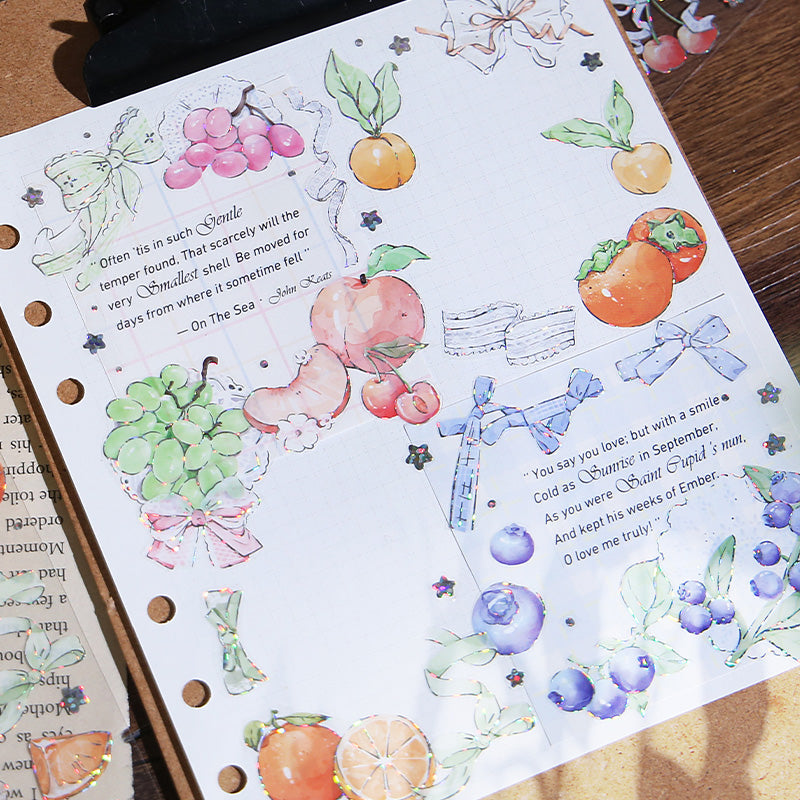 “Often ’tis in such Gentle
temper found, That scarcely will the
very Smallest shell Be moved for
days from where it sometime fell”
— On The Sea · John Keats
“You say you love; but with a smile
Cold as Sunrise in September,
As you were Saint Cupid’s nun,
And kept his weeks of Ember.
O love me truly!”
later
his
hoppin
the toile
ordered
Moment
had
a few
that
hips
Mothe
eyes
new
I we